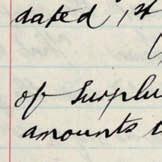 dated 1st
of Surplu
amounts t